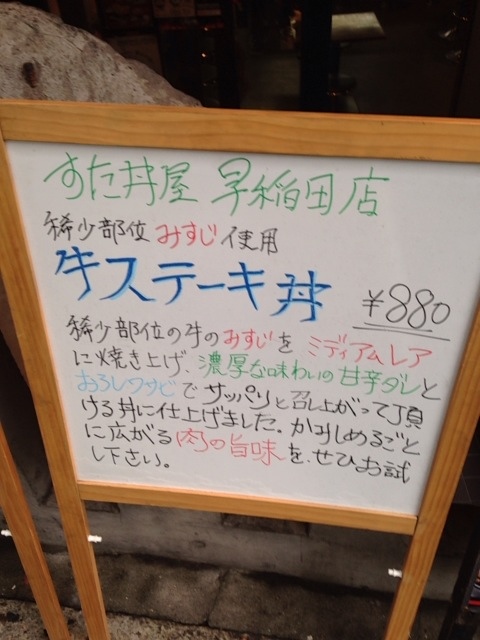 すた丼屋 早稲田店
稀少部位みすじ使用
牛ステーキ丼 ¥880
稀少部位の牛のみすじをミディアムレア
に焼き上げ、濃厚な味わいの甘辛ダレと
おろしワサビでサッパリと召し上がって頂
ける丼に仕上げました。かみしめるごと
に広がる肉の旨味を、ぜひお試
し下さい。